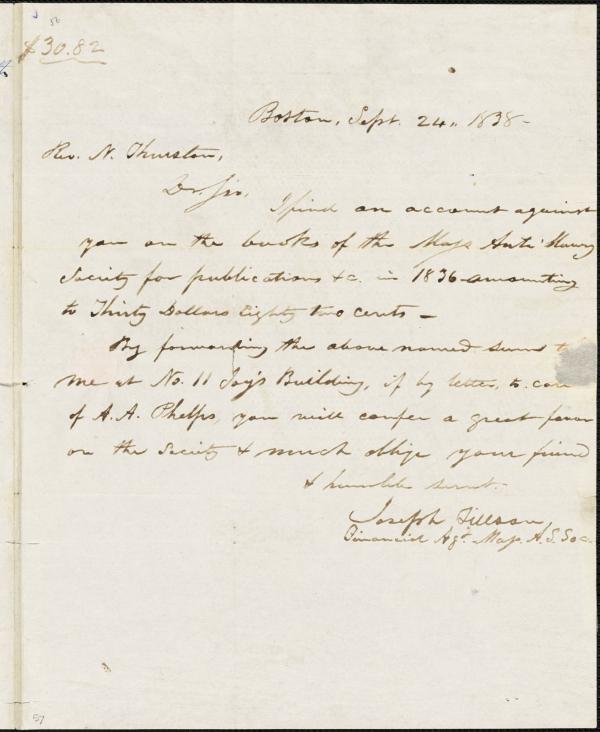 56
$30.82
Boston, Sept. 24, 1838-
Rev. N. Thurston,
Dr. Sir,
I find an account against
you on the books of the Mass Anti Slavery
Society for publications &c. in 1836 amounting
to Thirty Dollars Eighty two cents-
By forwarding the above named sum
me at No. 11 Joy's Building, if by letter, to care
of A. A. Phelps, you will confer a great favor
on the Society & much oblige your friend
& humble servt.
Joseph Tillson,
Financial Agt. Mass. A. S. Soc.
57